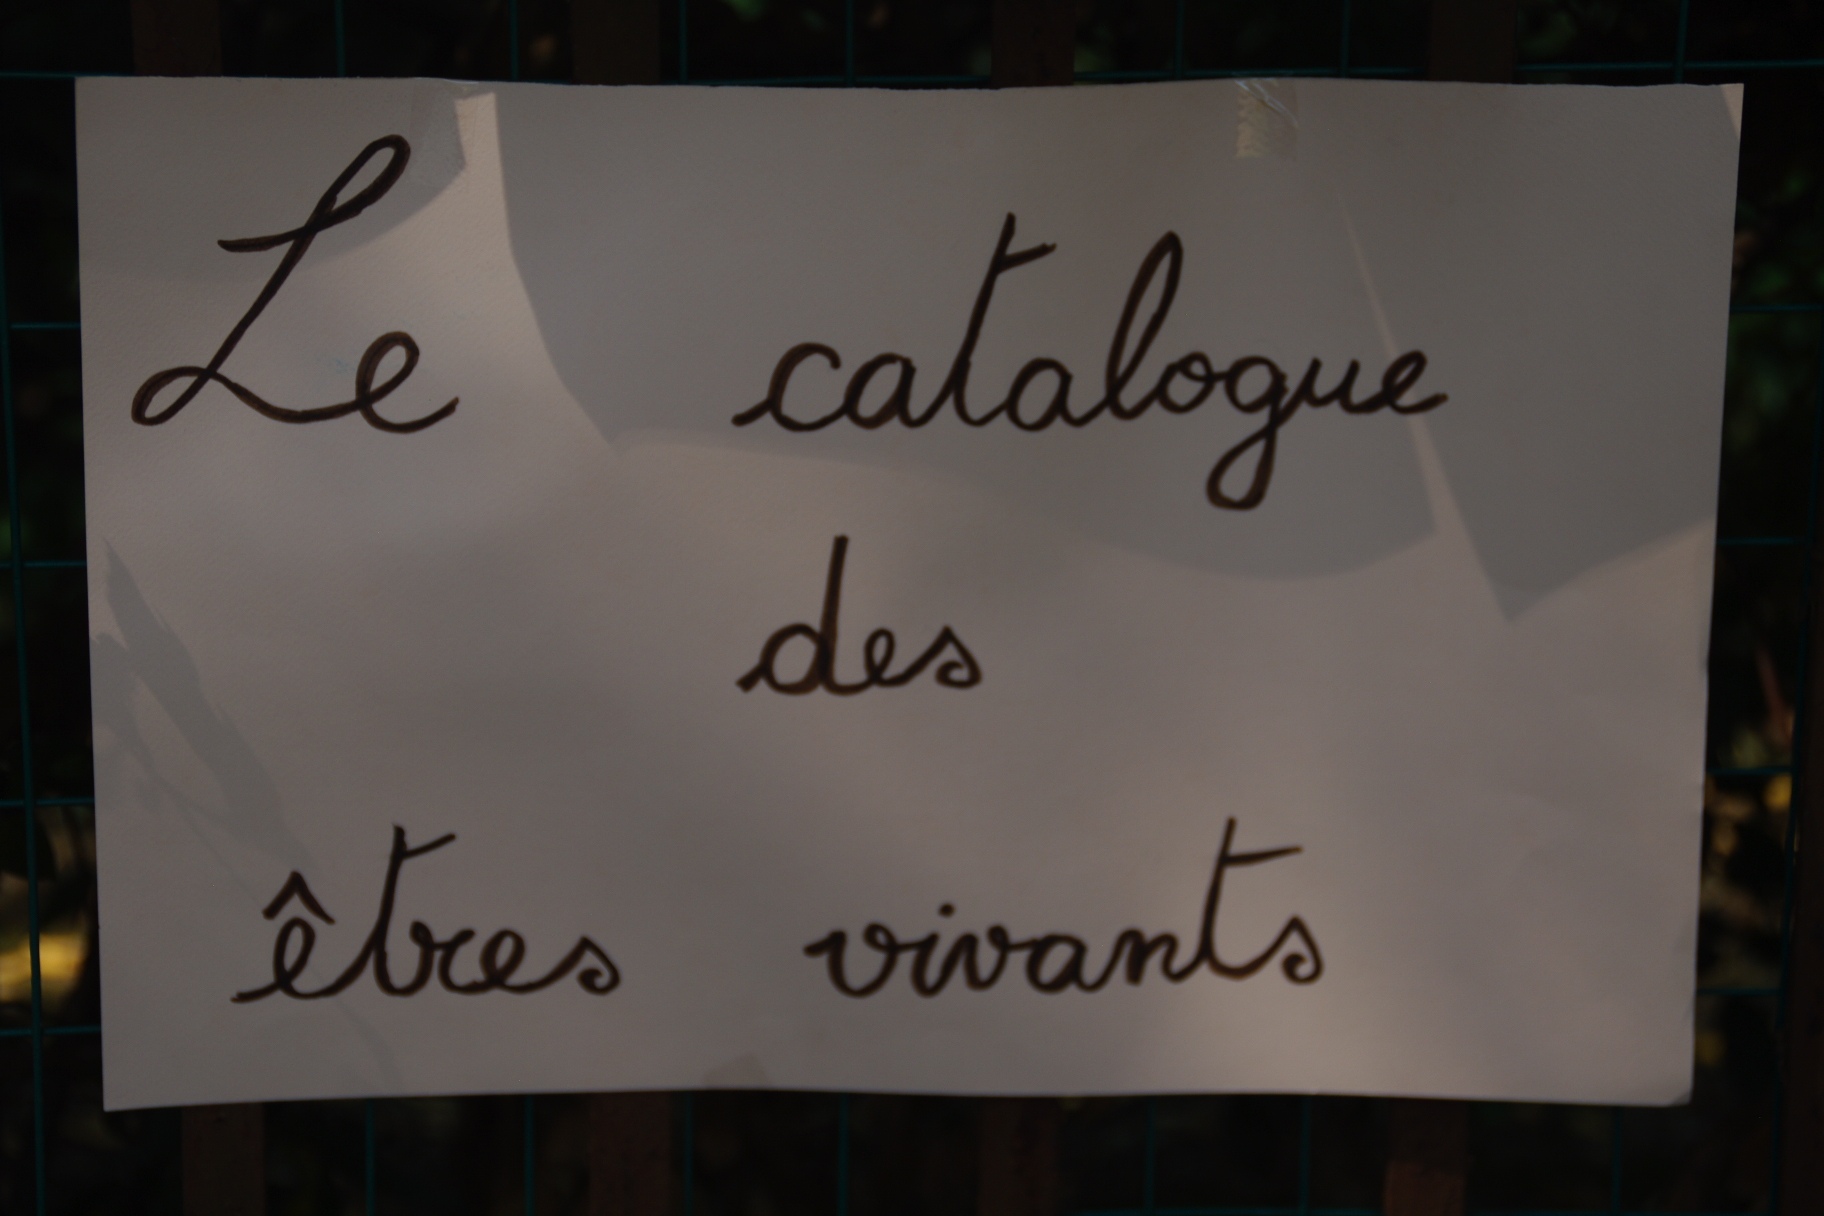 Le catalogue
des
êtres vivants